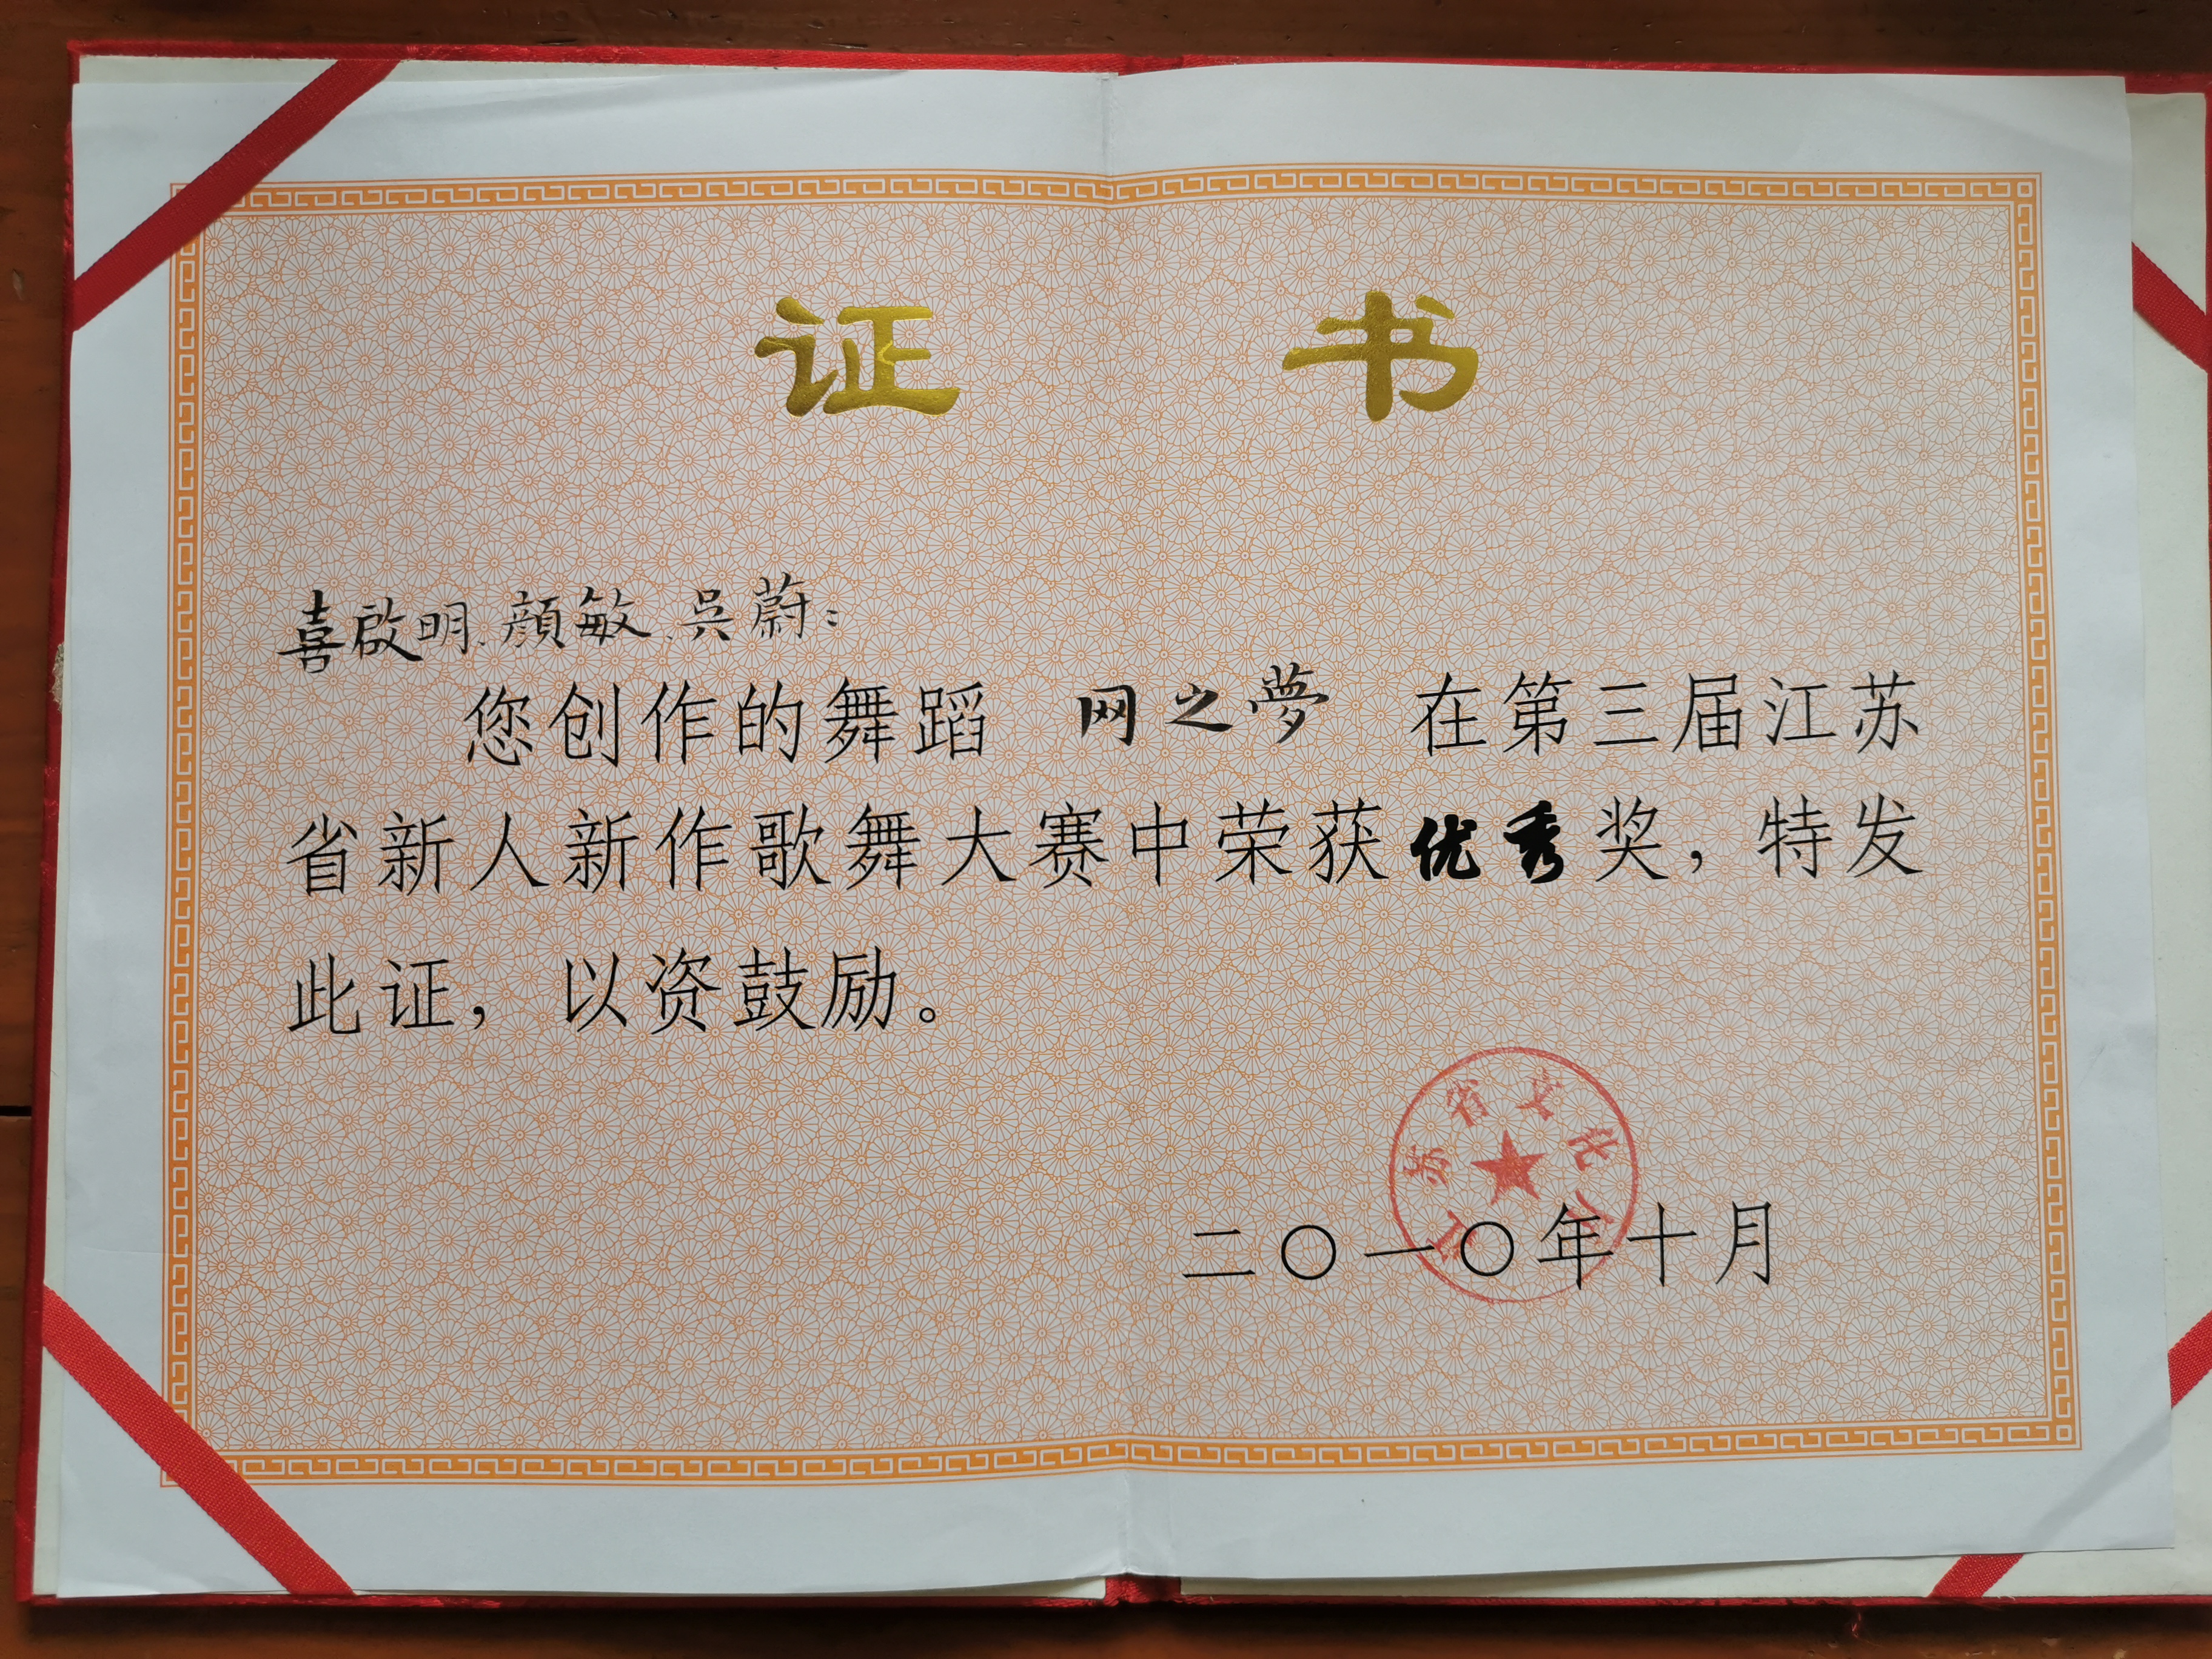 证 书
喜啟明、顔敏、吳蔚：
您创作的舞蹈 网之夢 在第三届江苏
省新人新作歌舞大赛中荣获优秀奖，特发
此证，以资鼓励。
江苏省文化厅
二〇一〇年十月